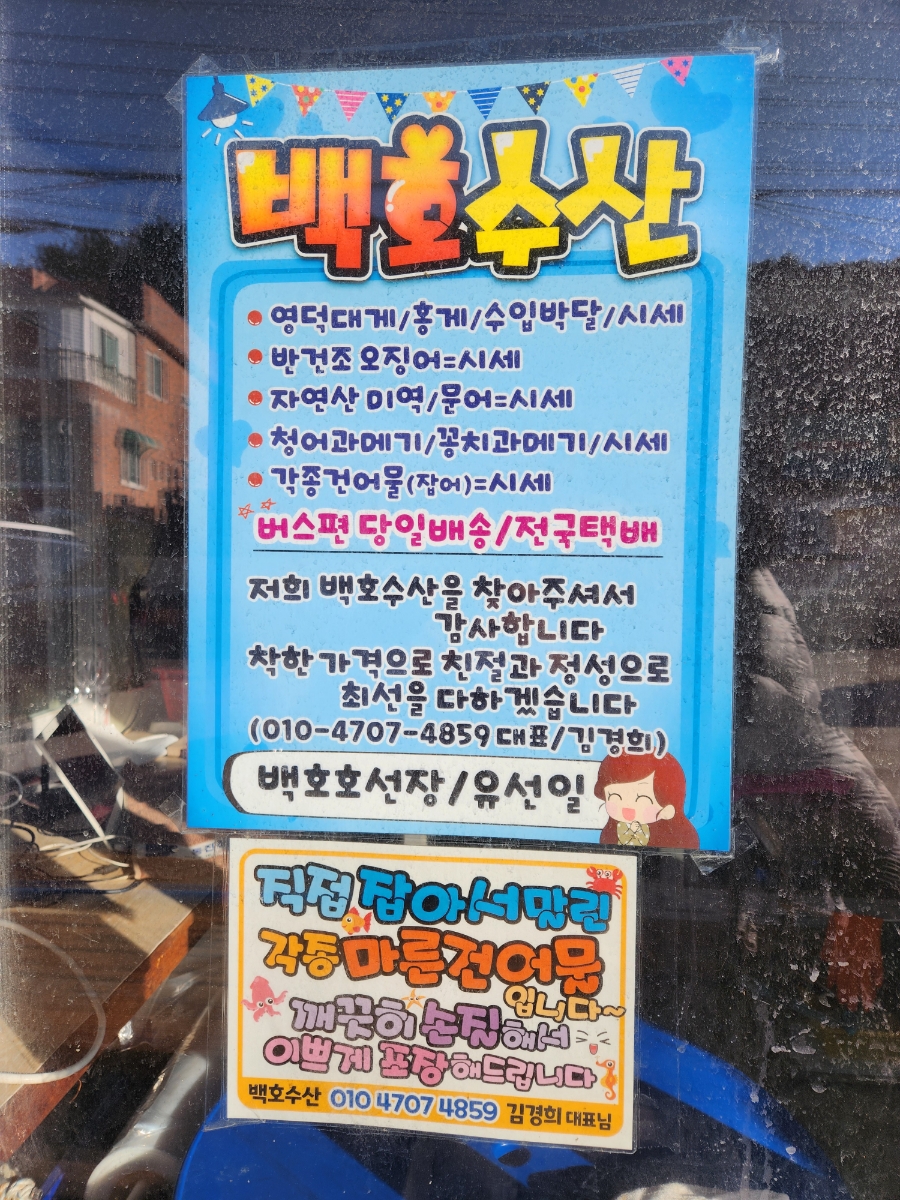 백호수산
영덕대게/홍게/수입박달/시세
반건조 오징어=시세
자연산 미역/문어=시세
청어과메기/꽁치과메기/시세
각종건어물(잡어)=시세
버스편 당일배송/전국택배
저희 백호수산을 찾아주셔서
감사합니다
착한가격으로 친절과 정성으로
최선을 다하겠습니다
(010-4707-4859 대표/김경희)
백호호선장/유선일
직접 잡아서말린
각종 마른건어물
입니다~
깨끗히 손짓해서
이쁘게 포장해드립니다
백호수산 010 4707 4859 김경희 대표님